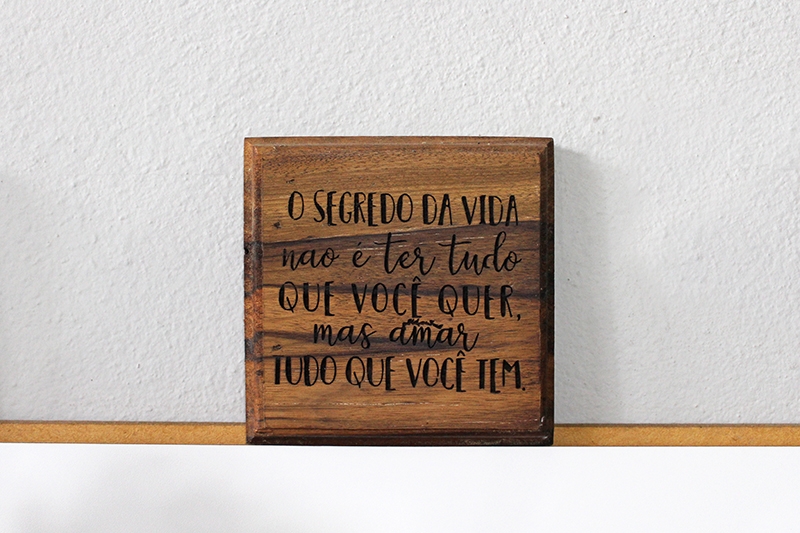 O SEGREDO DA VIDA
nao é ter tudo
QUE VOCÊ QUER,
mas amar
TUDO QUE VOCÊ TEM.